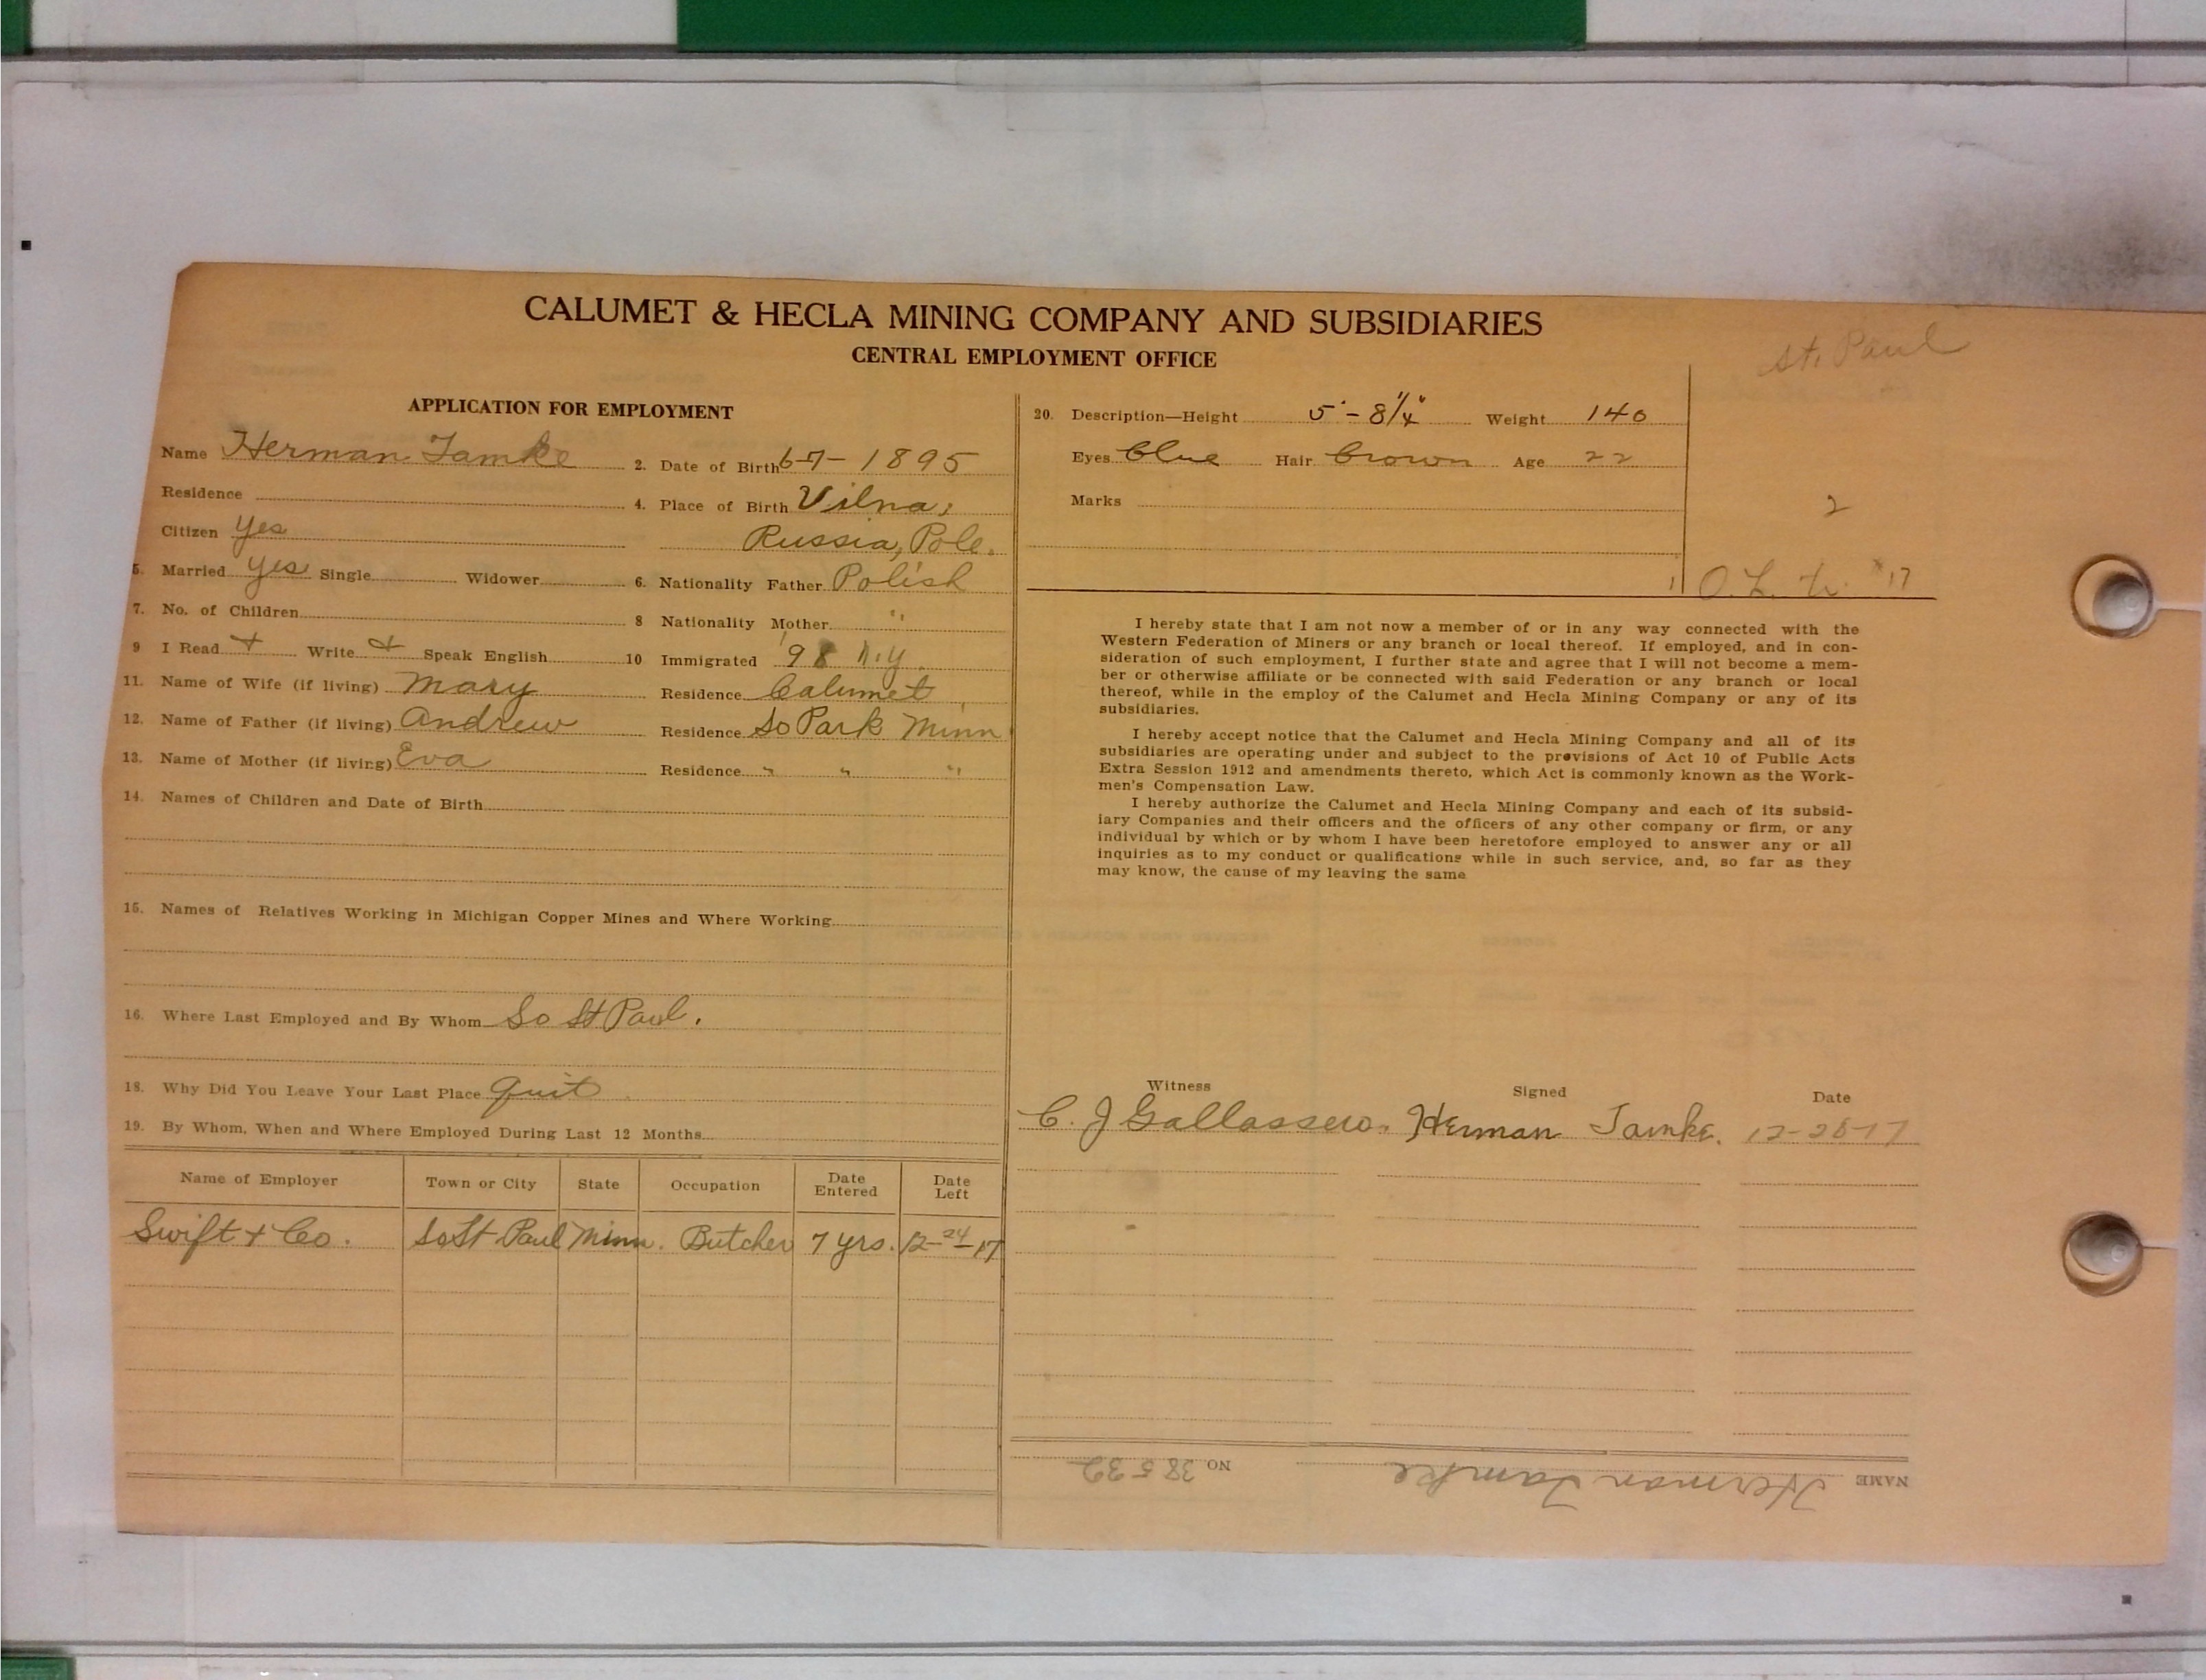 CALUMET & HECLA MINING COMPANY AND SUBSIDIARIES
CENTRAL EMPLOYMENT OFFICE
St. Paul
APPLICATION FOR EMPLOYMENT
Name Herman Tamke 2. Date of Birth 6-7-1895
Residence 4. Place of Birth Vilna,
Citizen Yes Russia, Pole.
5. Married Yes Single Widower 6. Nationality Father Polish
7. No. of Children 8 Nationality Mother " "
9 I Read + Write + Speak English 10 Immigrated '98 N.Y.
11. Name of Wife (if living) Mary Residence Calumet
12. Name of Father (if living) Andrew Residence So Park Minn
13. Name of Mother (if living) Eva Residence " " "
14. Names of Children and Date of Birth
15. Names of Relatives Working in Michigan Copper Mines and Where Working
16. Where Last Employed and By Whom So St Paul.
18. Why Did You Leave Your Last Place Quit
19. By Whom, When and Where Employed During Last 12 Months
Name of Employer Town or City State Occupation Date Entered Date Left
Swift + Co. So St Paul Minn. Butcher 7 yrs. 12-24-17
20. Description—Height 5'-8 1/4" Weight 140
Eyes Blue Hair Brown Age 22
Marks
2
17
I hereby state that I am not now a member of or in any way connected with the
Western Federation of Miners or any branch or local thereof. If employed, and in con-
sideration of such employment, I further state and agree that I will not become a mem-
ber or otherwise affiliate or be connected with said Federation or any branch or local
thereof, while in the employ of the Calumet and Hecla Mining Company or any of its
subsidiaries.
I hereby accept notice that the Calumet and Hecla Mining Company and all of its
subsidiaries are operating under and subject to the provisions of Act 10 of Public Acts
Extra Session 1912 and amendments thereto, which Act is commonly known as the Work-
men's Compensation Law.
I hereby authorize the Calumet and Hecla Mining Company and each of its subsid-
iary Companies and their officers and the officers of any other company or firm, or any
individual by which or by whom I have been heretofore employed to answer any or all
inquiries as to my conduct or qualifications while in such service, and, so far as they
may know, the cause of my leaving the same
Witness Signed Date
C. J Gallassero. Herman Tamke. 12-28-17
NAME Herman Tamke NO 38532